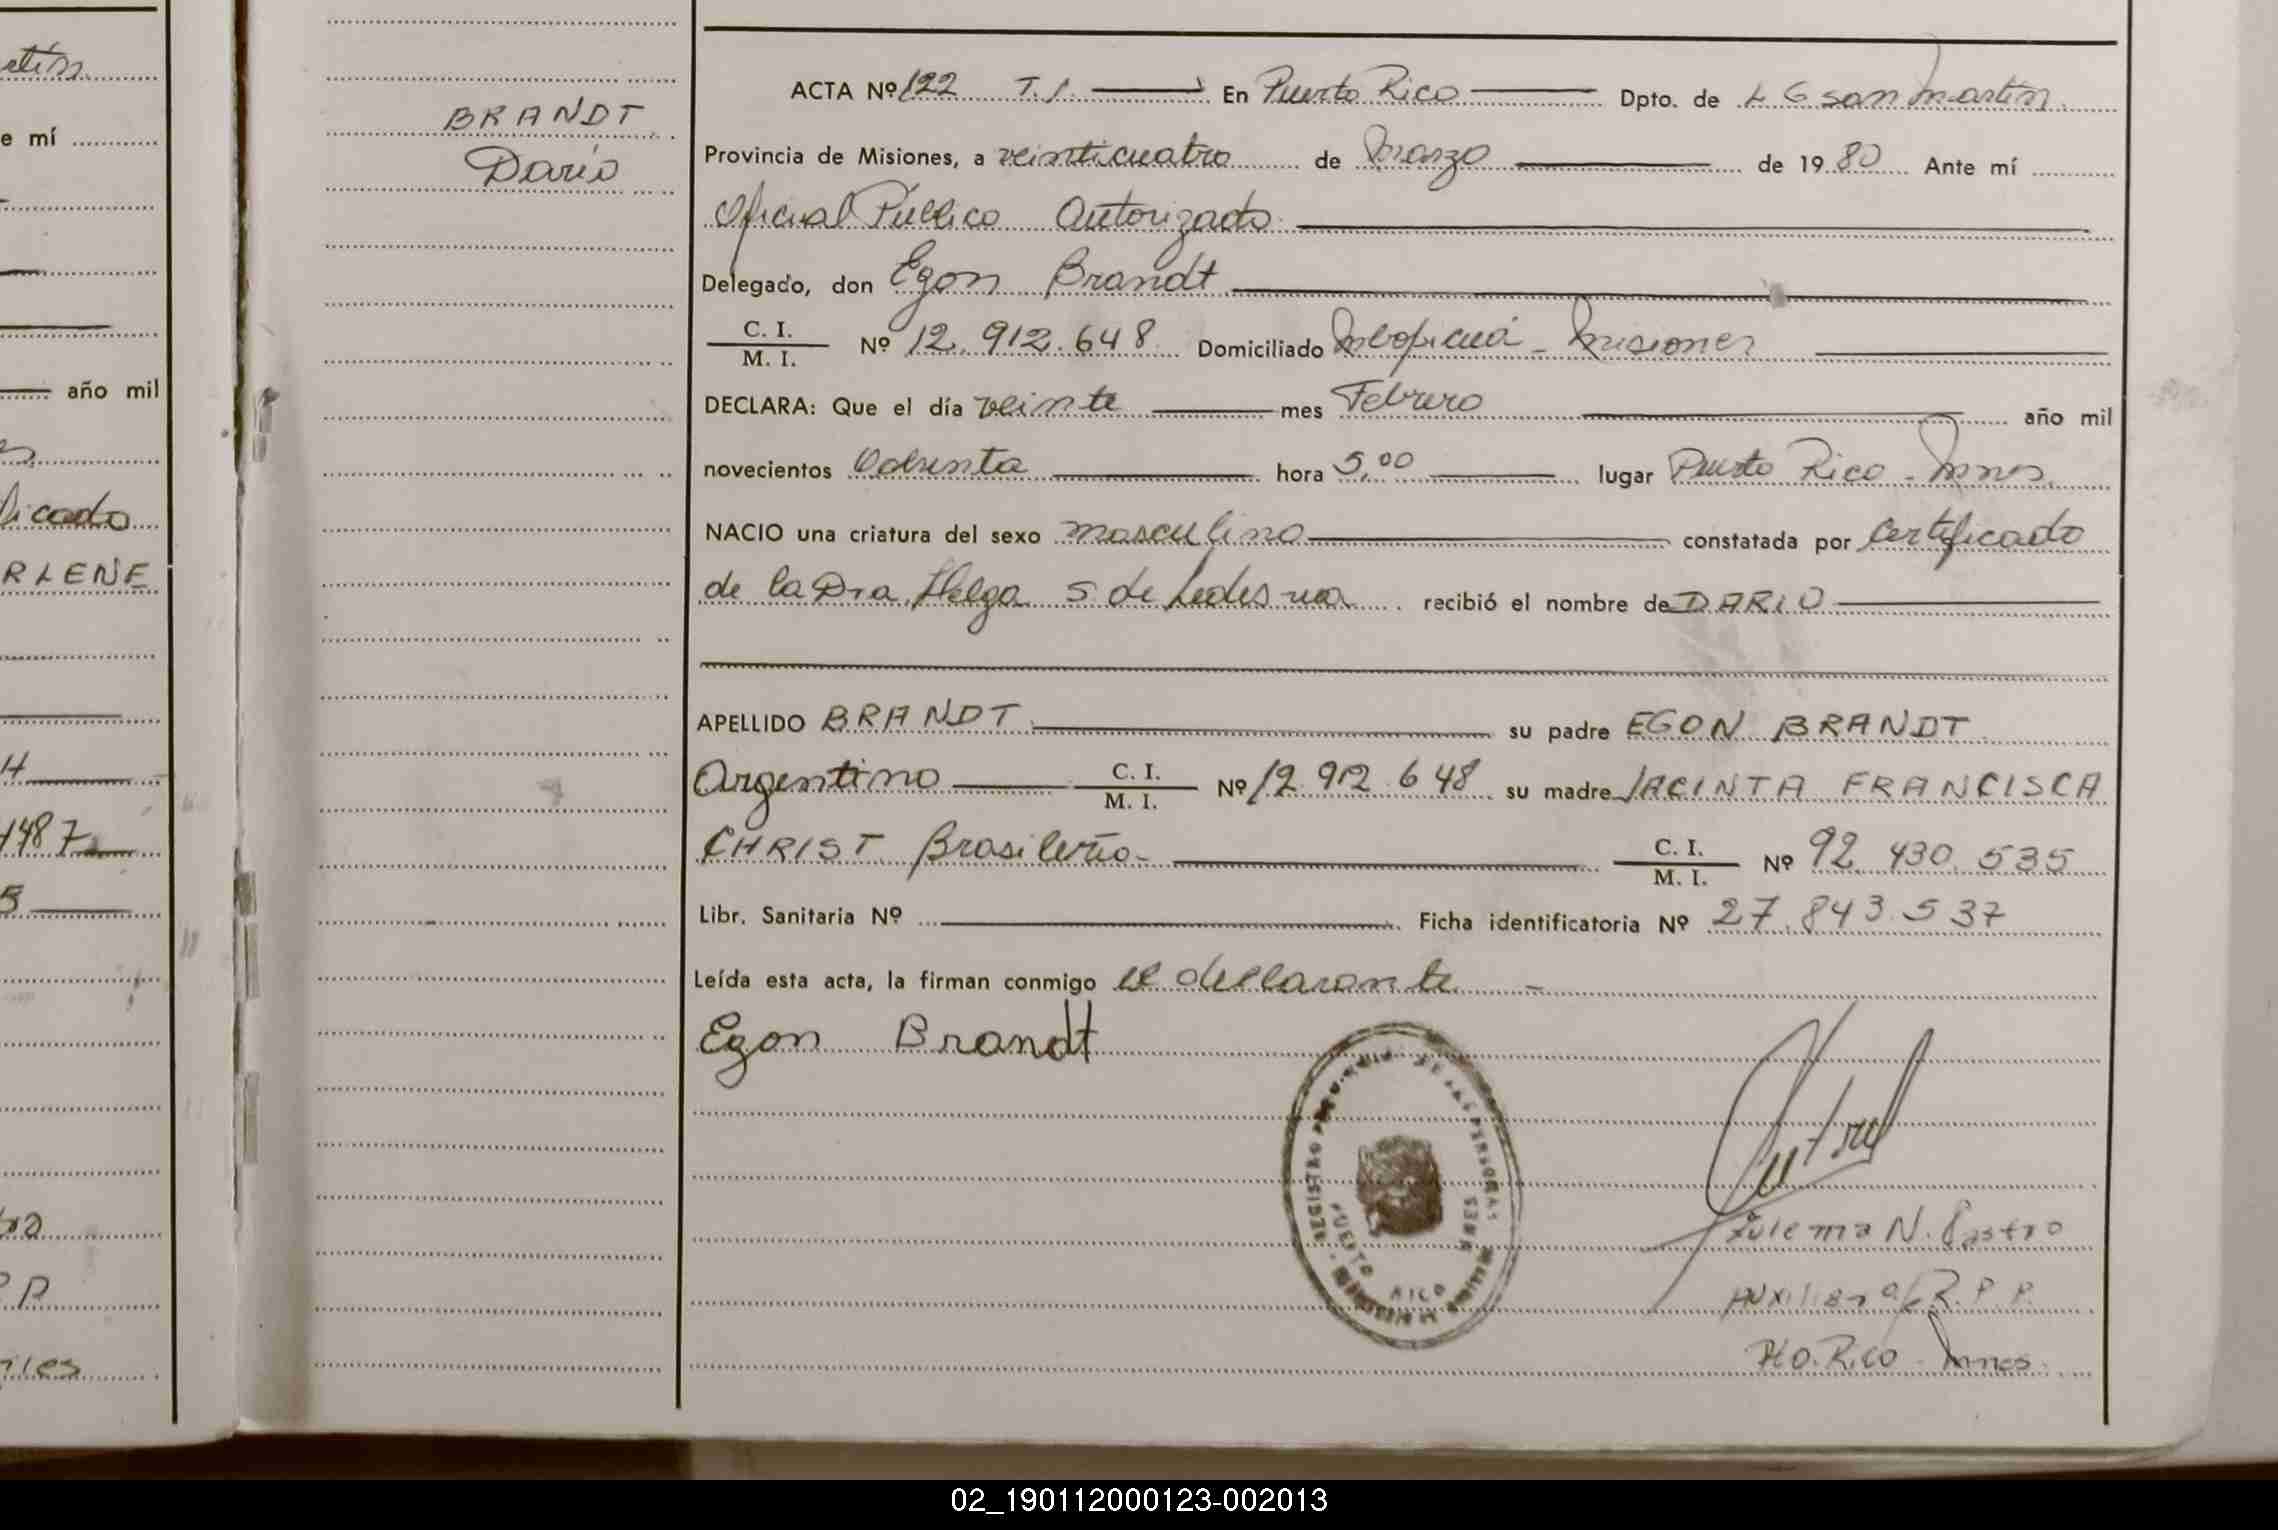 rtín
e mí
año mil
icado
RLENE
H
1487
P.P.
BRANDT
Dario
ACTA Nº 122 T.I. En Puerto Rico Dpto. de L G San Martín
Provincia de Misiones, a veinticuatro de Marzo de 1980 Ante mí
Oficial Público Autorizado
Delegado, don Egon Brandt
C. I. / M. I. Nº 12.912.648 Domiciliado Mbopicuá - Misiones
DECLARA: Que el día veinte mes Febrero año mil
novecientos Ochenta hora 5,00 lugar Puerto Rico - Mnes.
NACIO una criatura del sexo masculino constatada por Certificado
de la Dra. Helga S de Ledesma recibió el nombre de DARIO
APELLIDO BRANDT su padre EGON BRANDT
Argentino C. I. / M. I. Nº 12.912.648 su madre JACINTA FRANCISCA
CHRIST Brasileña - C. I. / M. I. Nº 92.430.535
Libr. Sanitaria Nº Ficha identificatoria Nº 27.843.537
Leída esta acta, la firman conmigo el declarante -
Egon Brandt
REGISTRO PROVINCIAL DE LAS PERSONAS
PUERTO RICO
Zulema N. Castro
Auxiliar a/c R.P.P.
Pto. Rico - Mnes.
02_190112000123-002013